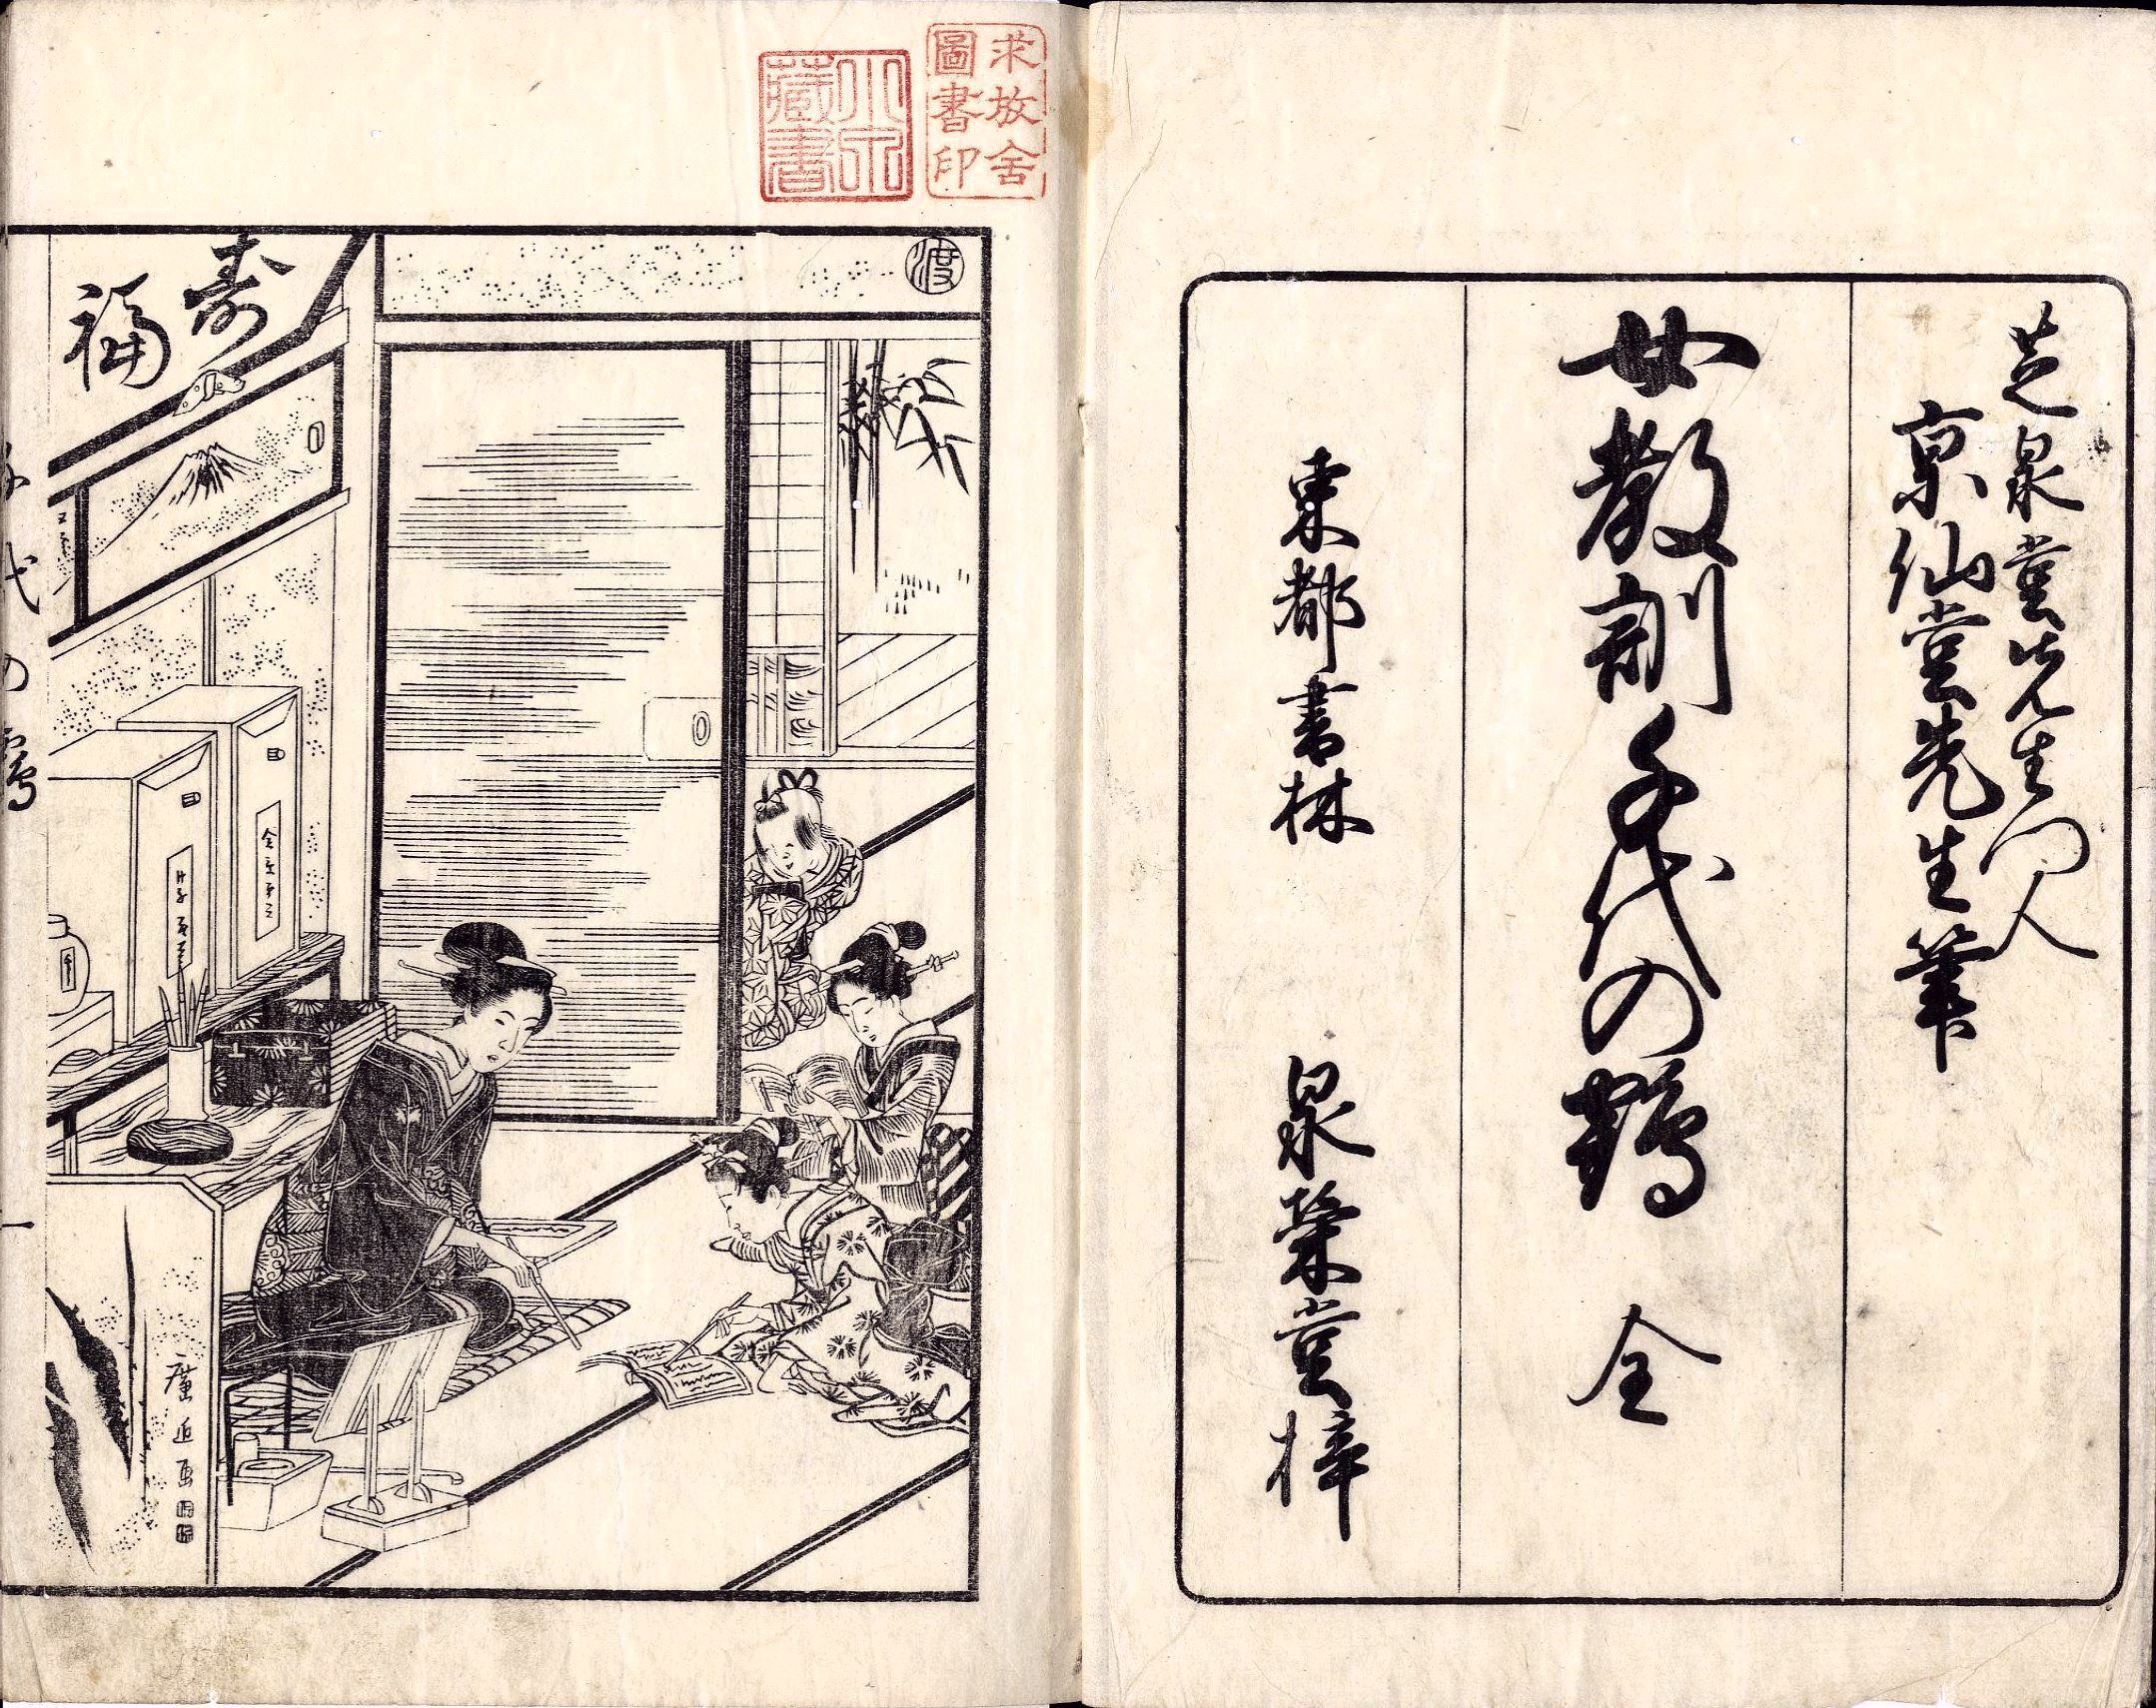 芝泉堂先生門人
泉仙堂先生筆
女教訓千代の鶴 全
東都書林 泉榮堂梓
求放舍
圖書印
小泉
藏書
渡
寿
福
千代の鶴 一
廣近画